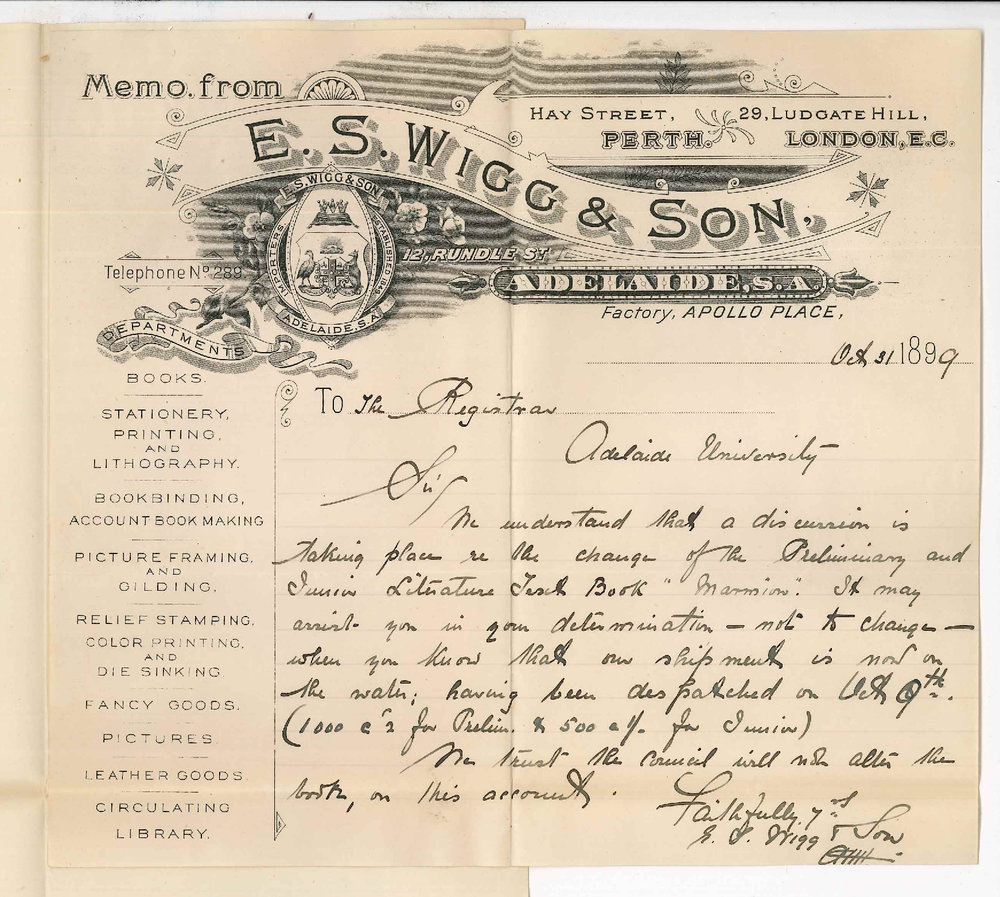 Memo. from
E. S. WIGG & SON,
HAY STREET, PERTH.
29, LUDGATE HILL, LONDON, E.C.
E. S. WIGG & SON
IMPORTERS
ESTABLISHED
ADELAIDE, S.A.
12, RUNDLE ST
ADELAIDE, S.A.
Factory, APOLLO PLACE,
Telephone No. 289
DEPARTMENTS
BOOKS.
STATIONERY,
PRINTING,
AND
LITHOGRAPHY.
BOOKBINDING,
ACCOUNT BOOK MAKING
PICTURE FRAMING,
AND
GILDING,
RELIEF STAMPING,
COLOR PRINTING,
AND
DIE SINKING
FANCY GOODS.
PICTURES
LEATHER GOODS
CIRCULATING
LIBRARY.
Oct 31 1899
To The Registrar
Adelaide University
Sir
We understand that a discussion is
taking place re the change of the Preliminary and
Junior Literature Text Book "Marmion". It may
assist you in your determination – not to change –
when you know that our shipment is now on
the water; having been despatched on Oct 9th.
(1000 for Prelim. & 500 for Junior)
We trust the council will not alter the
book, on this account.
Faithfully yrs
E. S. Wigg & Son